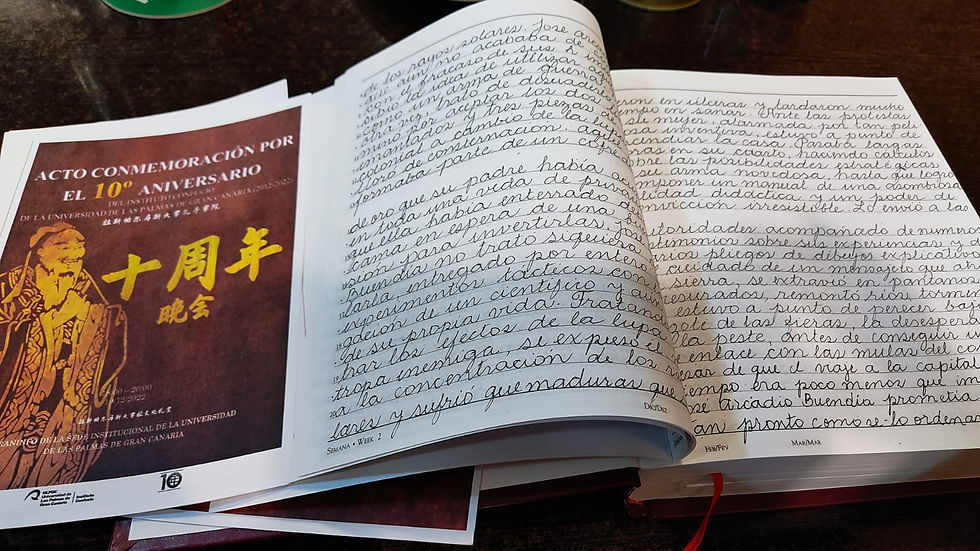 ACTO CONMEMORACIÓN POR
EL 10º ANIVERSARIO
DEL INSTITUTO CONFUCIO
DE LA UNIVERSIDAD DE LAS PALMAS DE GRAN CANARIA (2012-2022)
拉斯帕尔马斯大学孔子学院
十周年
晚会
20:00
/12/2022
拉斯帕尔马斯大学校
RANINFO DE LA SEDE INSTITUCIONAL DE LA UNIVERSIDAD
DE LAS PALMAS DE GRAN CANARIA
ULPGC
Universidad de
Las Palmas de
Gran Canaria
Instituto
Confucio
10
de los rayos solares. José
que aún no acababa de
por el fracaso de sus
la idea de utilizar
como un arma de guerra
trató de
por aceptar los dos
y tres piezas de
colonial a cambio de la lupa
de consternación
formaba parte de un cofre
de oro que su padre había
en toda una vida de
que ella había enterrado
cama en espera de una
para invertirlas. José
Buendía no trató siquiera
entregado por entero
experimentos tácticos con
de un científico y aun
de su propia vida. Tratando
los efectos de la lupa
tropa enemiga, se expuso él
a la concentración de los
lares y sufrió quemaduras que
SEMANA • WEEK 2
DIC/DEZ
en úlceras y tardaron mucho
empo en sanar. Ante las protestas
su mujer, alarmada por tan
inventiva, estuvo a punto de
incendiar la casa. Pasaba largas
en su cuarto, haciendo cálculos
obre las posibilidades estratégicas
su arma novedosa, hasta que logró
mponer un manual de una asombrosa
didáctica y un poder de
irresistible. Lo envió a las
toridades acompañado de numero
timonios sobre sus experiencias y
pliegos de dibujos explicativos
cuidado de un mensajero que
sierra, se extravió en pantanos
remontó ríos
estuvo a punto de perecer bajo
ote de las fieras, la desespera
la peste, antes de conseguir
e enlace con las mulas del
esar de que el viaje a la capital
empo era poco menos que
Arcadio Buendía prometía
an pronto como se lo ordena
FEB/FEV
MAR/MAR